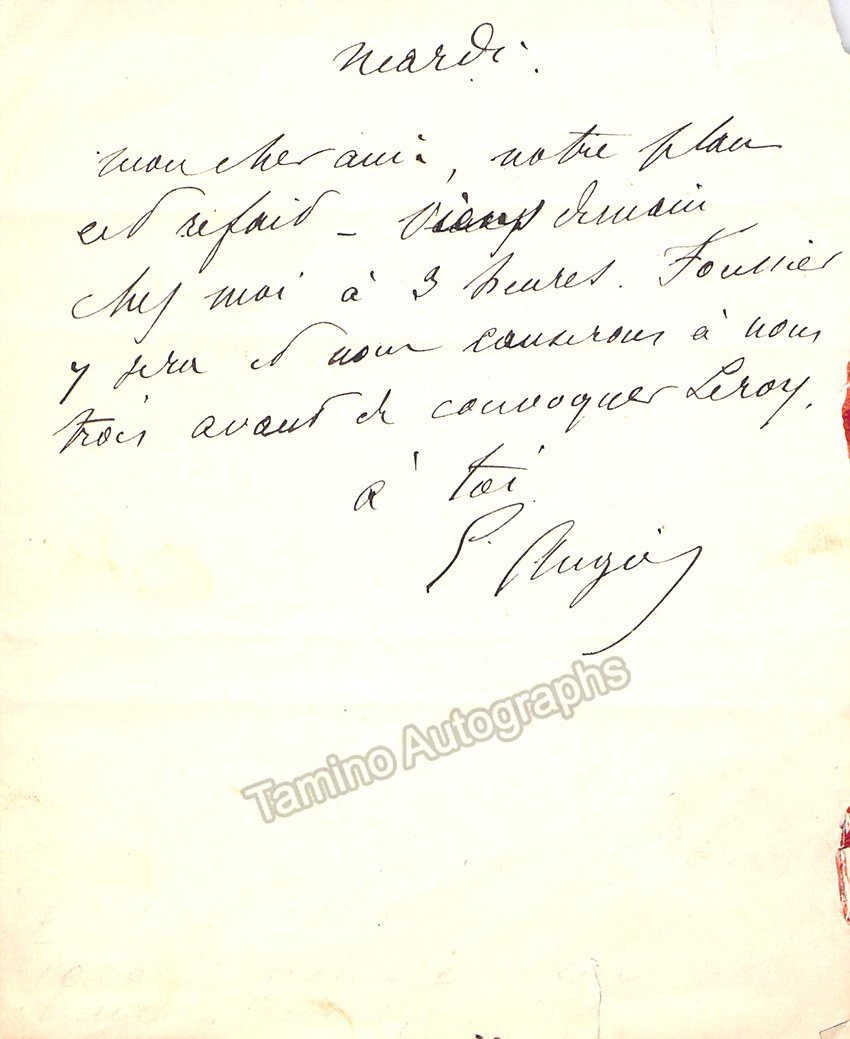 mardi.
mon cher ami, notre plan
est refait - viens demain
chez moi à 3 heures. Foussier
y sera et nous causerons à nous
trois avant de convoquer Leroy.
à toi
E. Augier
Tamino Autographs